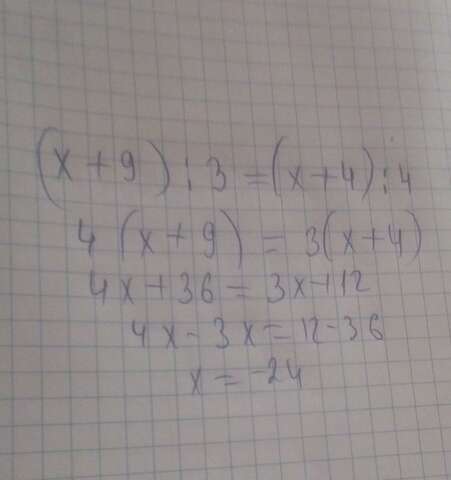 (x + 9) : 3 = (x + 4) : 4
4 (x + 9) = 3(x + 4)
4x + 36 = 3x + 12
4x - 3x = 12 - 36
x = -24